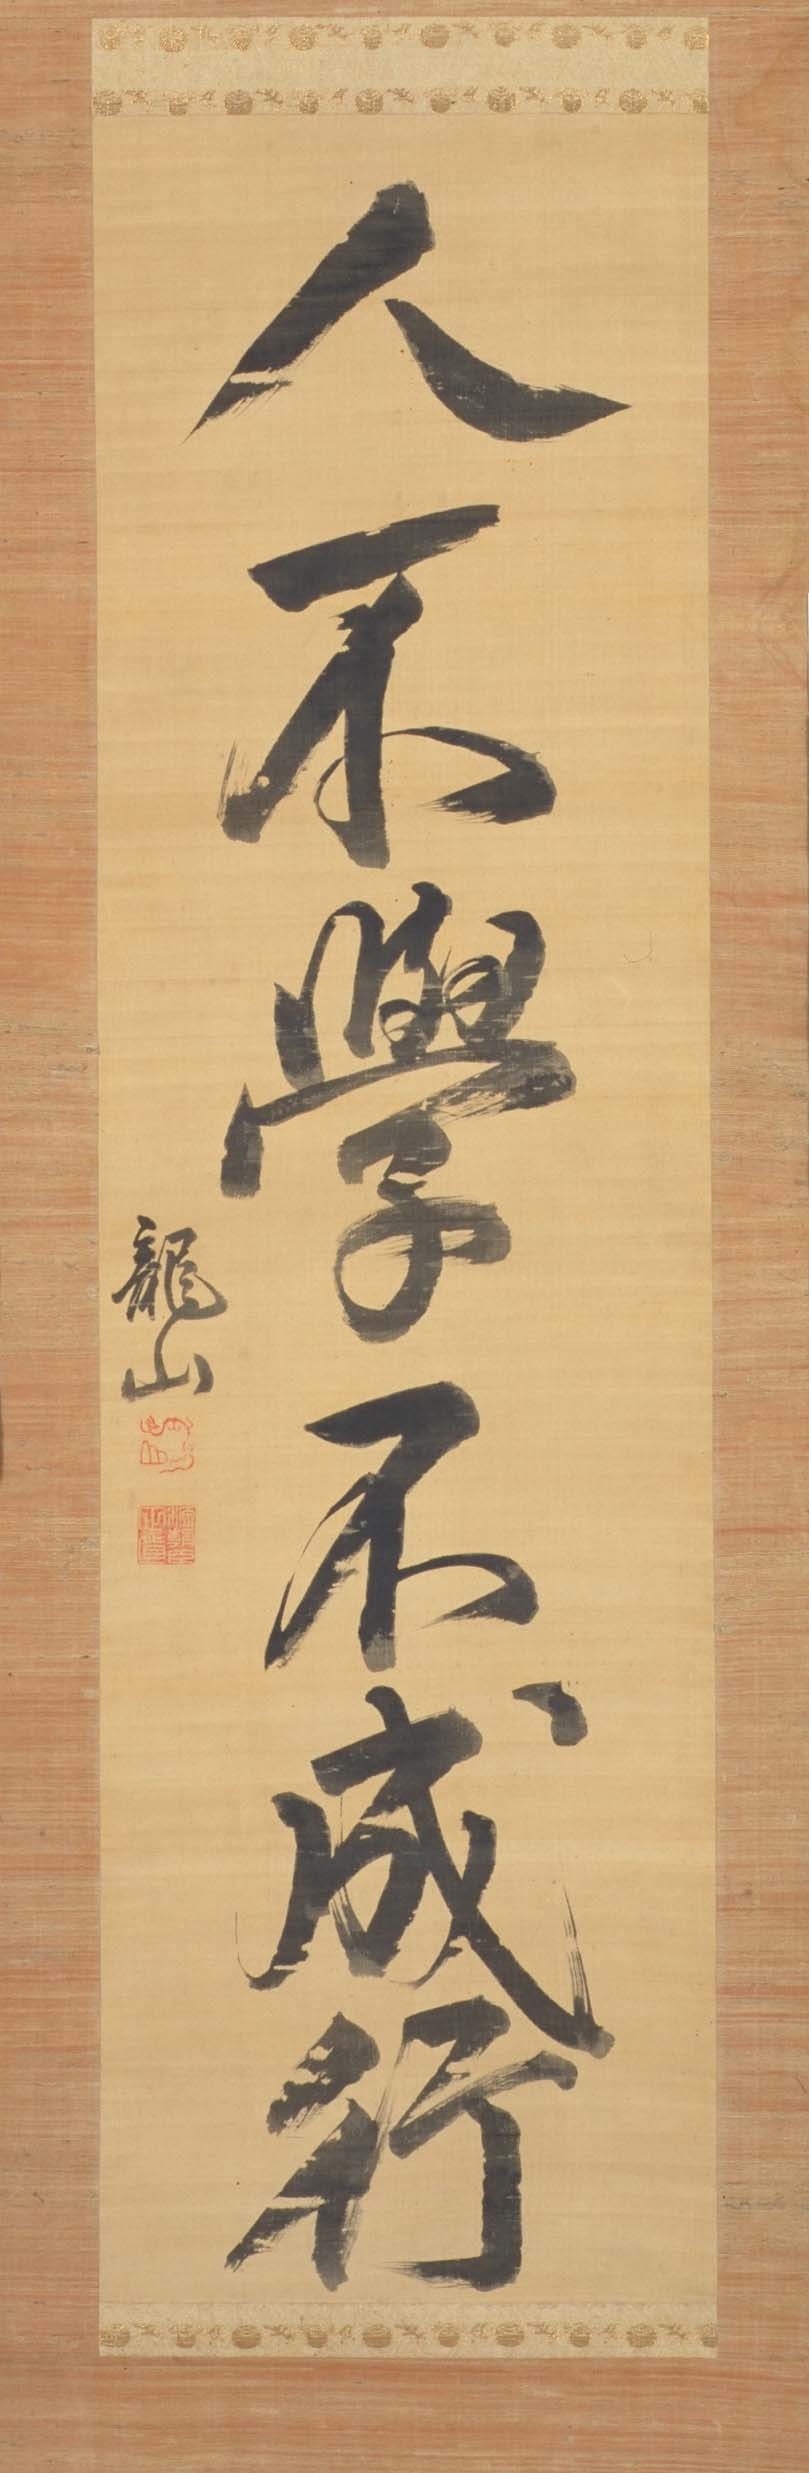 人不學不成行
龍山